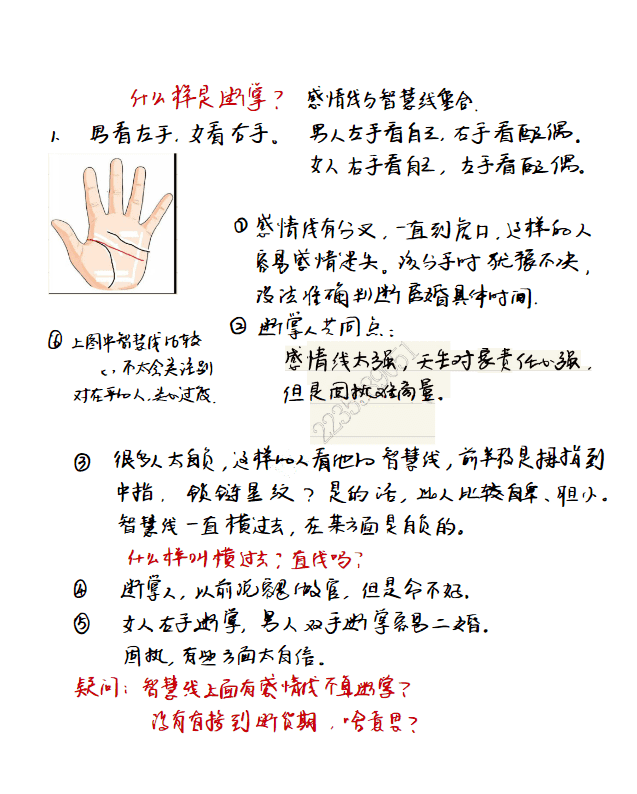 什么样是断掌？ 感情线与智慧线集合.
1、 男看左手，女看右手。 男人左手看自己，右手看配偶。
女人右手看自己，左手看配偶。
① 感情线有分叉，一直到虎口，这样的人
容易感情迷失。该分手时犹豫不决，
没法准确判断离婚具体时间.
② 断掌人共同点：
感情线太强，天生对家责任心强，
但是固执难商量。
2235389051
⑥ 上图中智慧线比较
，不太会关注别
对在乎的人，关心过度.
③ 很多人太自负，这样的人看他的智慧线，前半段是拇指到
中指，锁链星纹？是的话，此人比较自卑、胆小。
智慧线一直横过去，在某方面是自负的。
什么样叫横过去？直线吗？
④ 断掌人，以前说容易做官，但是命不好。
⑤ 女人左手断掌，男人双手断掌容易二婚。
固执，有些方面太自信。
疑问：智慧线上面有感情线不算断掌？
没有有接到断 ，啥意思？